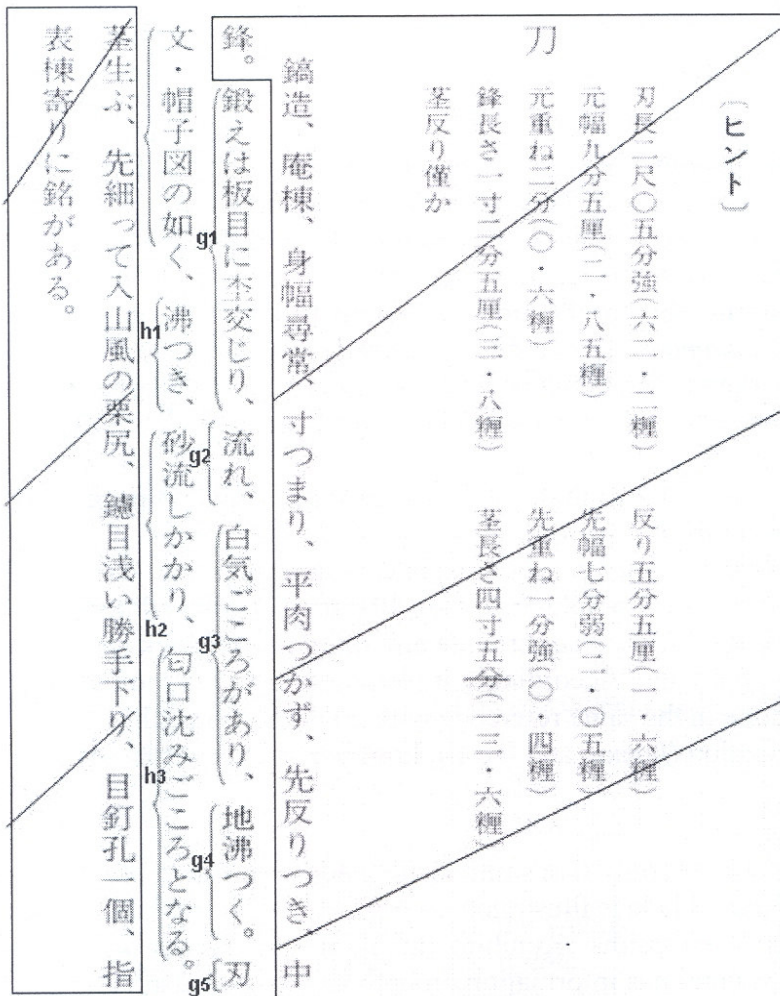 〔ヒント〕
刀
刃長二尺〇五分強(六二・二糎) 反り五分五厘(一・六糎)
元幅九分五厘(二・八五糎) 先幅七分弱(二・〇五糎)
元重ね二分(〇・六糎) 先重ね一分強(〇・四糎)
鋒長さ一寸二分五厘(三・八糎) 茎長さ四寸五分(一三・六糎)
茎反り僅か
鎬造、庵棟、身幅尋常、寸つまり、平肉つかず、先反りつき、中
鋒。鍛えは板目に杢交じり、流れ、白気ごころがあり、地沸つく。刃
g1
g2
g3
g4
g5
文・帽子図の如く、沸つき、砂流しかかり、匂口沈みごころとなる。
h1
h2
h3
茎生ぶ、先細って入山風の栗尻、鑢目浅い勝手下り、目釘孔一個、指
表棟寄りに銘がある。